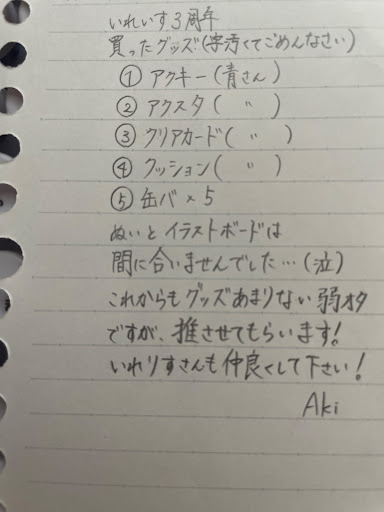 いれいす3周年
買ったグッズ(字汚くてごめんなさい)
① アクキー(青さん)
② アクスタ( 〃 )
③ クリアカード( 〃 )
④ クッション( 〃 )
⑤ 缶バ×5
ぬいとイラストボードは
間に合いませんでした…(泣)
これからもグッズあまりない弱オタ
ですが、推させてもらいます!
いれりすさんも仲良くして下さい!
Aki